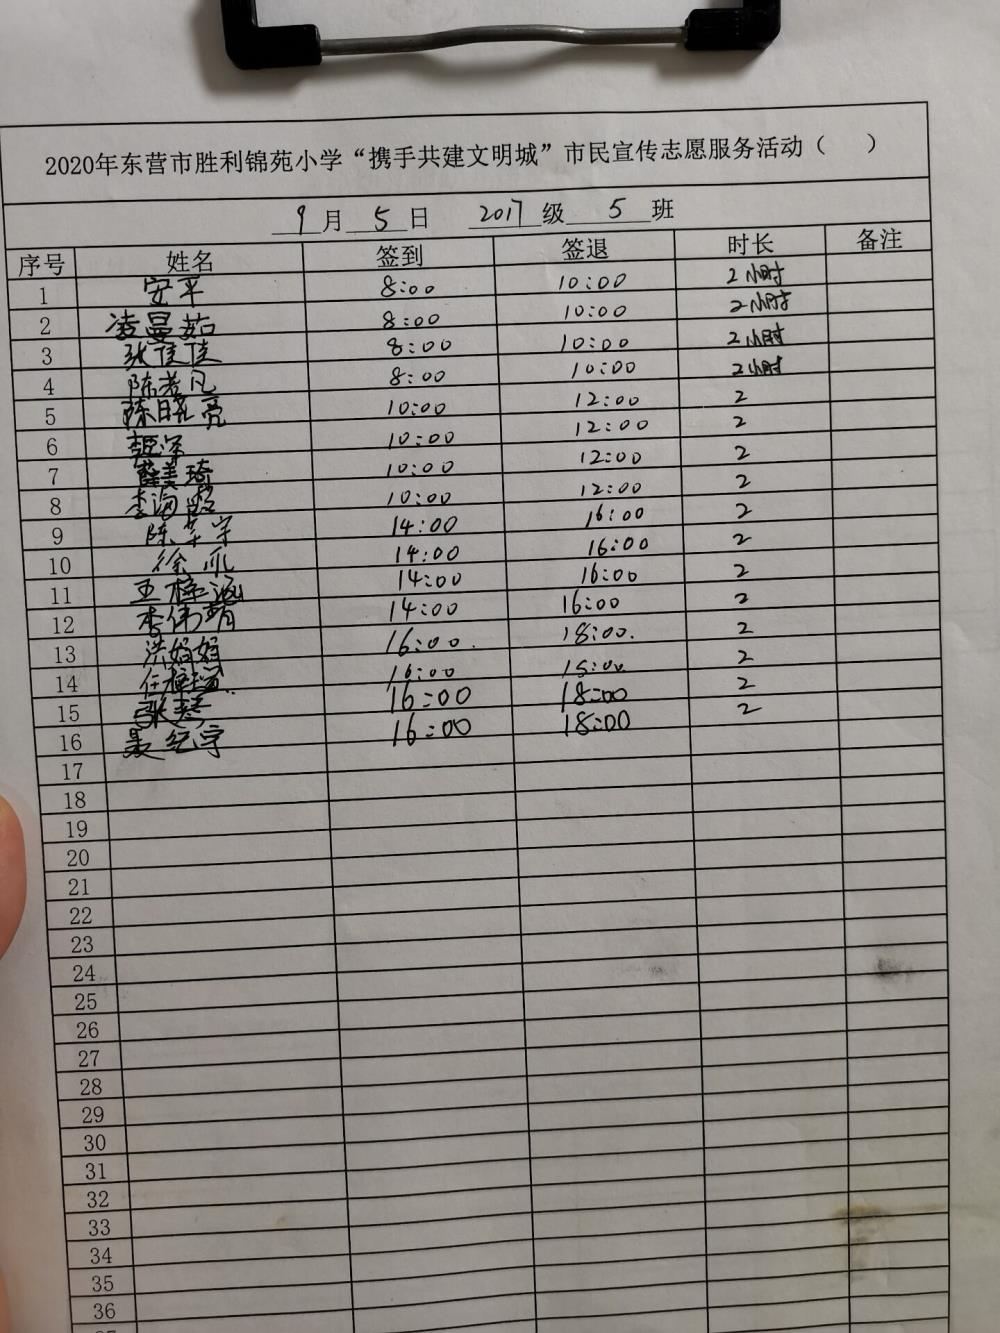 2020年东营市胜利锦苑小学“携手共建文明城”市民宣传志愿服务活动（ ）
9月5日 2017级5班
序号 姓名 签到 签退 时长 备注
1 安平 8:00 10:00 2小时
2 凌曼茹 8:00 10:00 2小时
3 张佳佳 8:00 10:00 2小时
4 陈若凡 8:00 10:00 2小时
5 陈晓亮 10:00 12:00 2
6 10:00 12:00 2
7 薛美琦 10:00 12:00 2
8 李海 10:00 12:00 2
9 陈 宇 14:00 16:00 2
10 徐 14:00 16:00 2
11 王梓涵 14:00 16:00 2
12 李伟娟 14:00 16:00 2
13 洪娟娟 16:00. 18:00. 2
14 任 16:00 18:00 2
15 张 16:00 18:00 2
16 纪宇 16:00 18:00 2
17
18
19
20
21
22
23
24
25
26
27
28
29
30
31
32
33
34
35
36